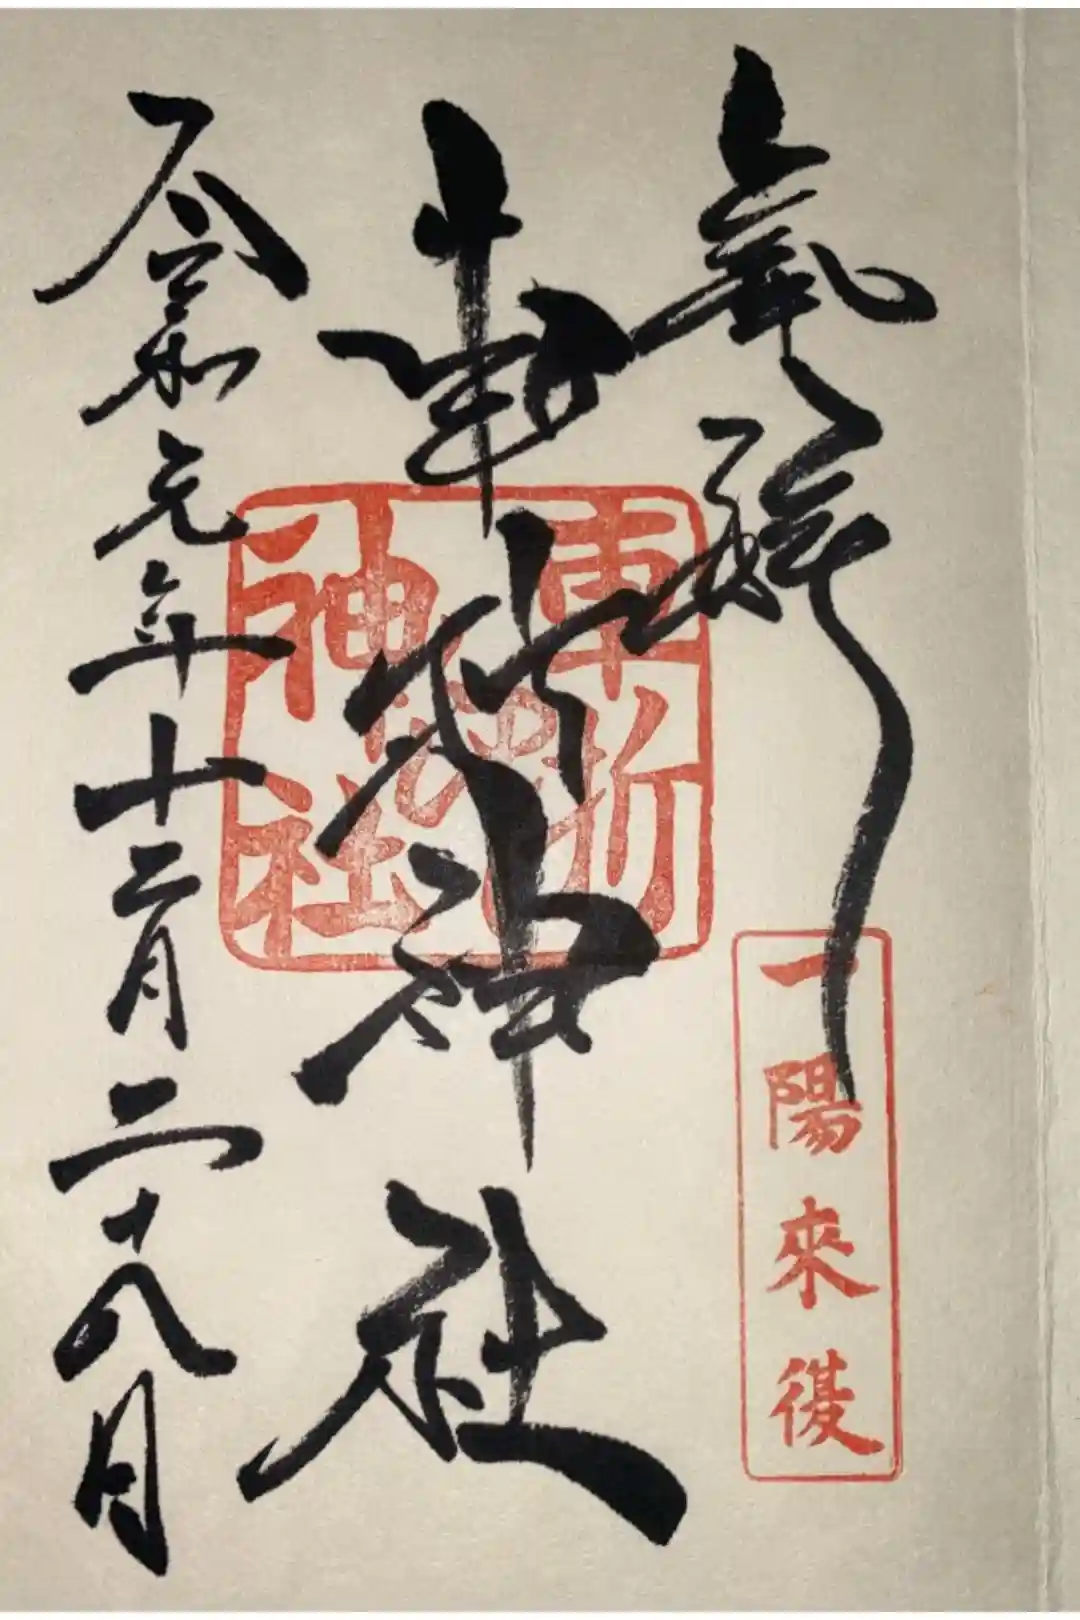 車折神社
令和元年十二月二十八日
車折
神社
一陽來復